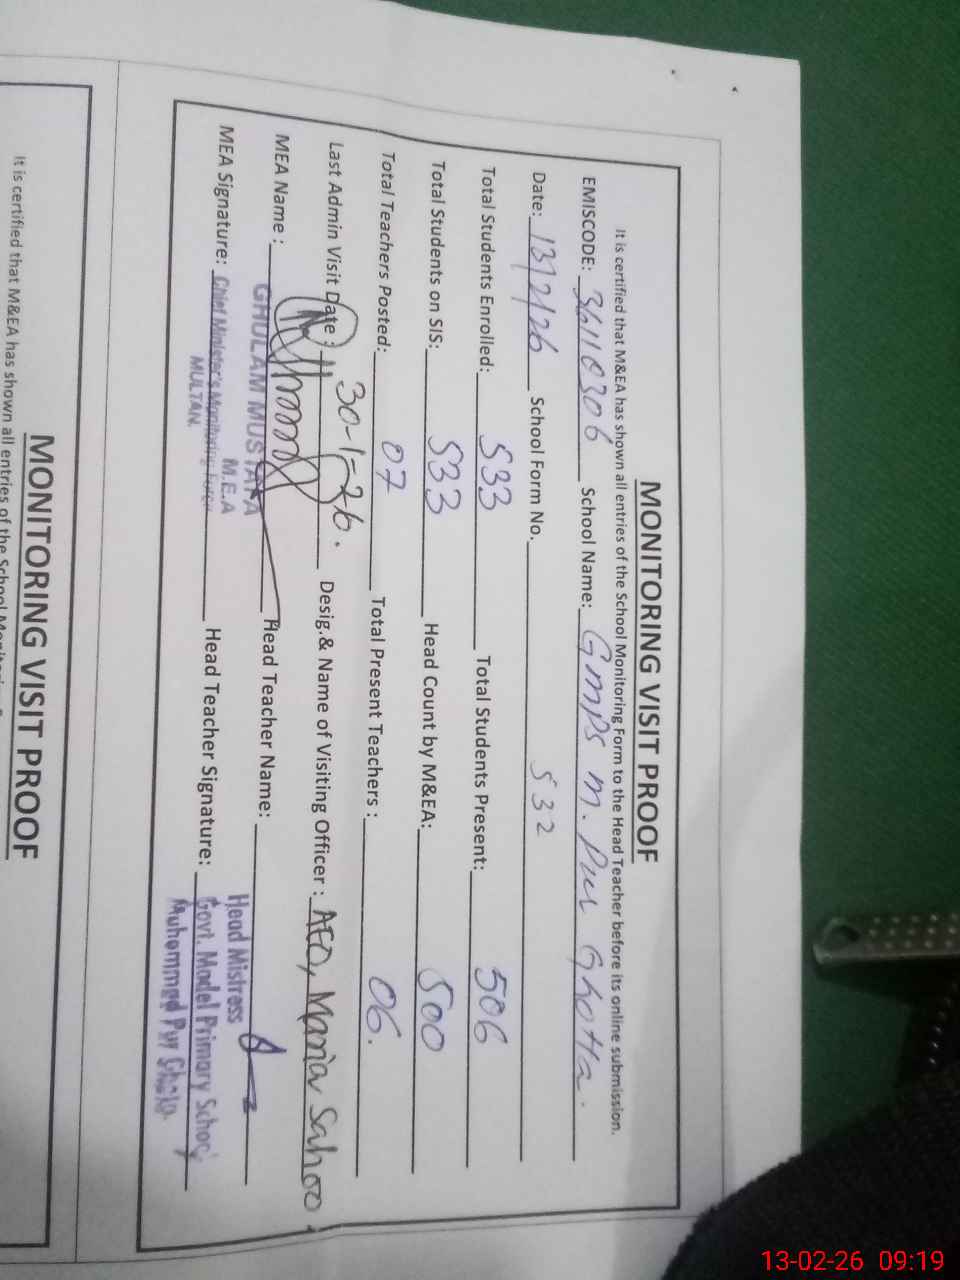 MONITORING VISIT PROOF
It is certified that M&EA has shown all entries of the School Monitoring Form to the Head Teacher before its online submission.
EMISCODE: 36110306 School Name: GMPS M. Pur Ghotta.
Date: 13/2/26 School Form No. 532
Total Students Enrolled: 533 Total Students Present: 506
Total Students on SIS: 533 Head Count by M&EA: 500
Total Teachers Posted: 07 Total Present Teachers : 06.
Last Admin Visit Date : 30-1-26. Desig.& Name of Visiting Officer : AEO, Maria Sahoo
MEA Name : GHULAM MUSTAFA Head Teacher Name:
M.E.A
MEA Signature: Chief Minister's Monitoring Force
MULTAN.
Head Teacher Signature:
Head Mistress
Govt. Model Primary School
Muhammad Pur
MONITORING VISIT PROOF
It is certified that M&EA has shown all entries of the School
13-02-26 09:19